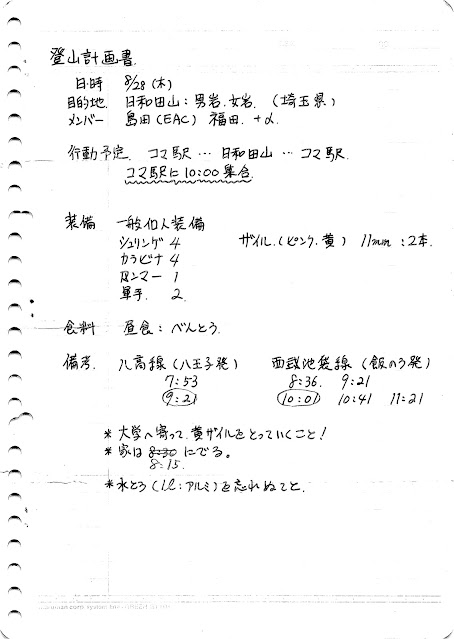 登山計画書.
日時 8/28 (木)
目的地. 日和田山:男岩.女岩. (埼玉県)
メンバー 島田(EAC) 福田. +α.
行動予定. コマ駅 … 日和田山 … コマ駅.
コマ駅に10:00集合.
装備 一般個人装備
シュリンゲ 4 ザイル.(ピンク.黄) 11mm :2本.
カラビナ 4
ハンマー 1
軍手. 2.
食料 昼食:べんとう.
備考. 八高線(八王子発) 西武池袋線(飯のう発)
7:53 8:36. 9:21
9:21 10:01 10:41 11:21
*大学へ寄って.黄ザイルをとっていくこと!
*家は 8:30 にでる。
8:15.
*水とう(1l:アルミ)を忘れぬこと.